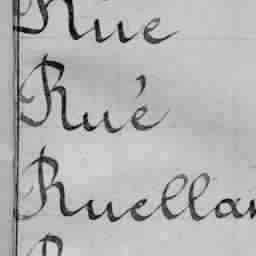 Rue
Rué
Ruellan